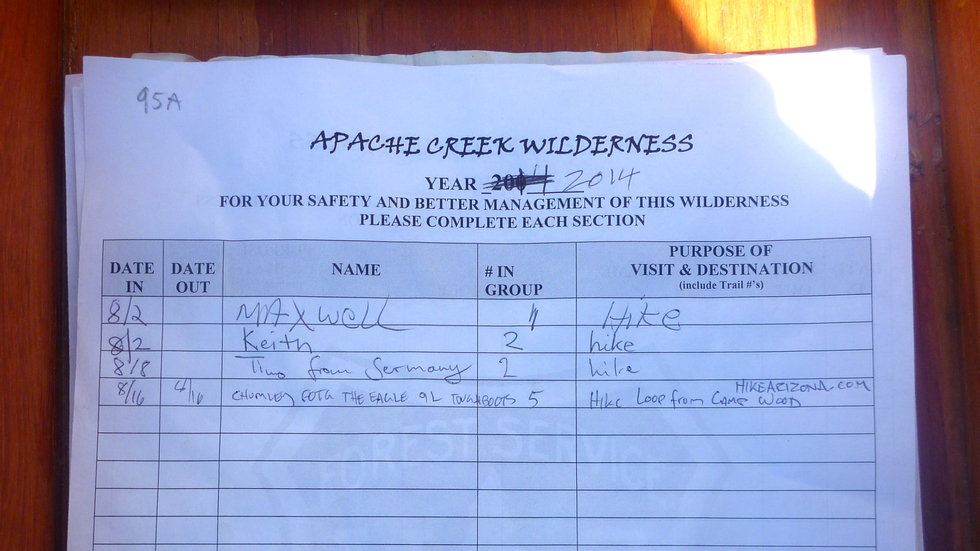 95A
APACHE CREEK WILDERNESS
YEAR 2014
FOR YOUR SAFETY AND BETTER MANAGEMENT OF THIS WILDERNESS
PLEASE COMPLETE EACH SECTION
DATE IN DATE OUT NAME # IN GROUP PURPOSE OF VISIT & DESTINATION (include Trail #'s)
8/2 MAXWell Hike
8/2 Keith 2 hike
8/8 from Germany 2 hike
8/16 CHUMLEY GOTG THE EAGLE 9L TOUGHBOOTS 5 Hike Loop from CAMP WOOD HIKEARIZONA.COM
FOREST SERVICE